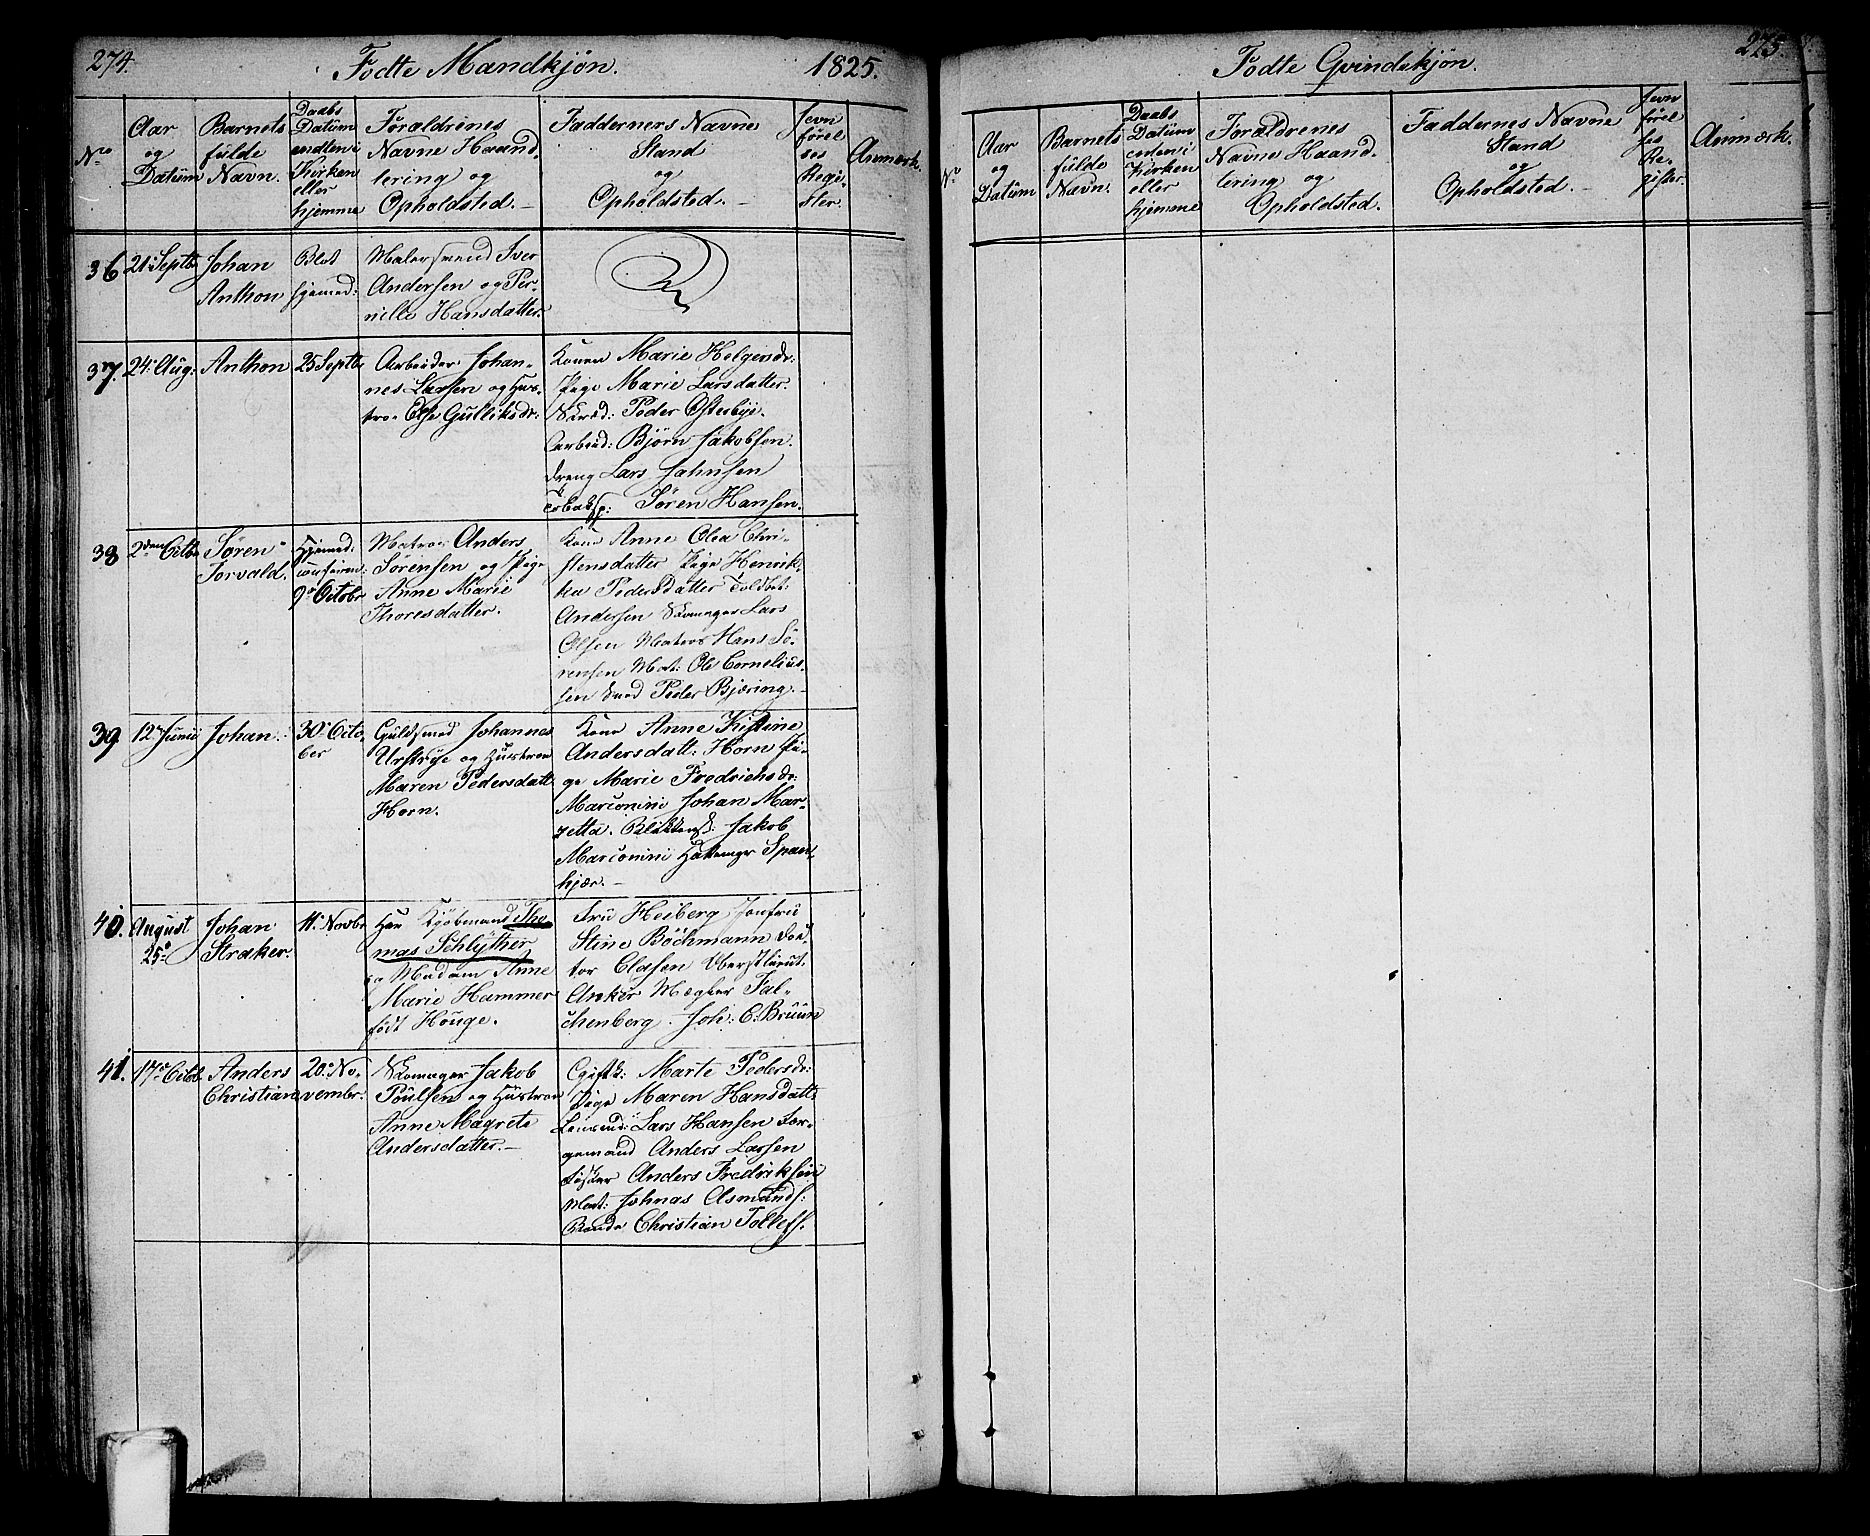 274.
Fødte Mandkjøn.
1825.
No
Aar
og
Datum
Barnets
fulde
Navn.
Daabs
Datum
endten i
Kirken
eller
hjemme
Foraldrenes
Navne Haand-
tering og
Opholdsted. –
Faddernes Navne
Stand
og
Opholdsted. –
Jevn
førel
ses
Regi-
ster.
Anmærk.
36
21 Septbr
Johan
Anthon
Blot
hjemmed:
Iver
Andersen og Per-
nille Hansdatter.
37.
24 Aug:
Anthon
25 Septbr
Arbeider Johan-
nes Larsen og Hus-
tro Else Gulliksdr:
Konen Marie Helgersdr:
Pige Marie Larsdatter.
Skræd: Peder Østerbye.
Arbeid: Bjørn Jakobsen.
Dreng Lars Johnsen
Søren Hansen.
38
2den Octbr
Søren
Torvald.
Hjemmed:
9 Octobr
Matros Anders
Sørensen og Pige
Anne Marie
Thoresdatter.
Kone Anne Olea Chri-
stensdatter Pige Henrik-
ka Pedersdatter
Andersen Skomager Lars
Olsen Matros Hans Sø-
rensen Mat: Ole Cornelius-
sen Smed Peder Bjering. –
39
12 Junii
Johan.
30 Octo-
ber
Guldsmed Johannes
og Hustroe
Maren Pedersdatt
Horn.
Kone Anne Kistine
Andersdatt: Horn Pi-
ge Marie Fredrichsdr:
Marconini Johan Mar-
zetta. Blikkensl: Jakob
Marconini Hattemager Span-
kjær. –
40.
August
25
Johan
Straker.
11 Novbr
Her Kjøbmand Tho-
mas Schlÿther
og Madam Anne
Marie Hammer
født Houge.
Fru Heiberg Jomfru
Stine Böchmann Dok-
tor Clasen Oberstlieut:
Anker Mægler Fal-
chenberg. Joh: C: Bruun
41.
17 Octob.
Anders
Christian
20 No-
vembr:
Skomager Jakob
Poulsen og Hustroe
Anne Magrete
Andersdatter. –
Marte Pedersdr:
Pige Maren Hansdatt:
Lars Hansen
Anders Larsen
Fisker Anders Fredriksen
Mat: Johnas Asmunds:
Bonde Christian Tollefs.
Fødte Qvindekjön.
275.
No
Aar
og
Datum
Barnets
fulde
Navn.
Daabs
Datum
enten i
Kirken
eller
hjemme
Foraldrenes
Navne Haand-
tering og
Opholdsted.
Faddernes Navne
Stand
og
Opholdsted. –
Jevn
førel
ses
Re-
gister.
Anmærk.